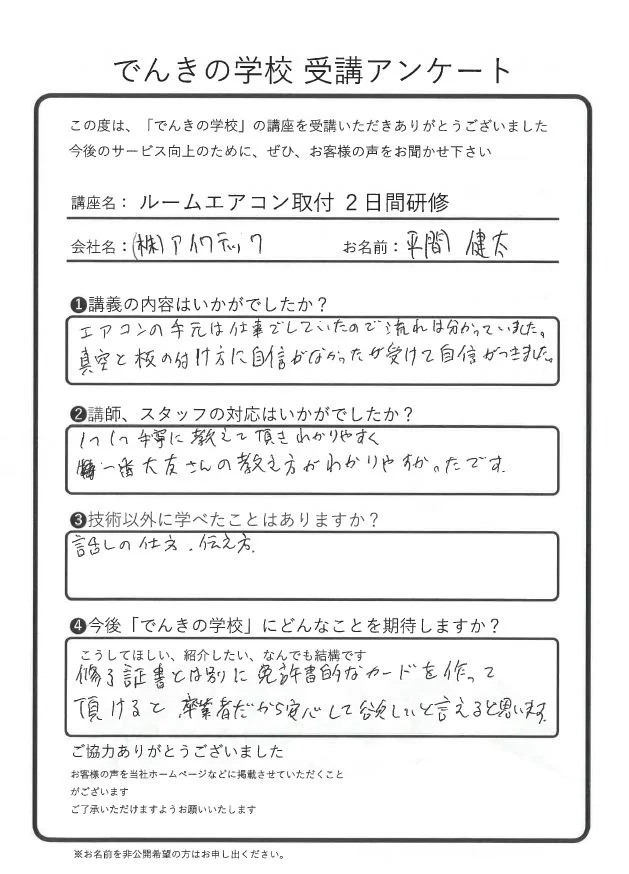 でんきの学校 受講アンケート
この度は、「でんきの学校」の講座を受講いただきありがとうございました
今後のサービス向上のために、ぜひ、お客様の声をお聞かせ下さい
講座名： ルームエアコン取付 2日間研修
会社名：(株)アイワテック お名前：平間 健太
❶講義の内容はいかがでしたか？
エアコンの手元は仕事でしていたので流れは分かっていました。
真空と板の付け方に自信がなかったが受けて自信がつきました。
❷講師、スタッフの対応はいかがでしたか？
1つ1つ丁寧に教えて頂きわかりやすく
一番大友さんの教え方がわかりやすかったです。
❸技術以外に学べたことはありますか？
話しの仕方、伝え方。
❹今後「でんきの学校」にどんなことを期待しますか？
こうしてほしい、紹介したい、なんでも結構です
修了証書とは別に免許書的なカードを作って
頂けると卒業者だから安心して欲しいと言えると思います。
ご協力ありがとうございました
お客様の声を当社ホームページなどに掲載させていただくこと
がございます
ご了承いただけますようお願いいたします
※お名前を非公開希望の方はお申し出ください。